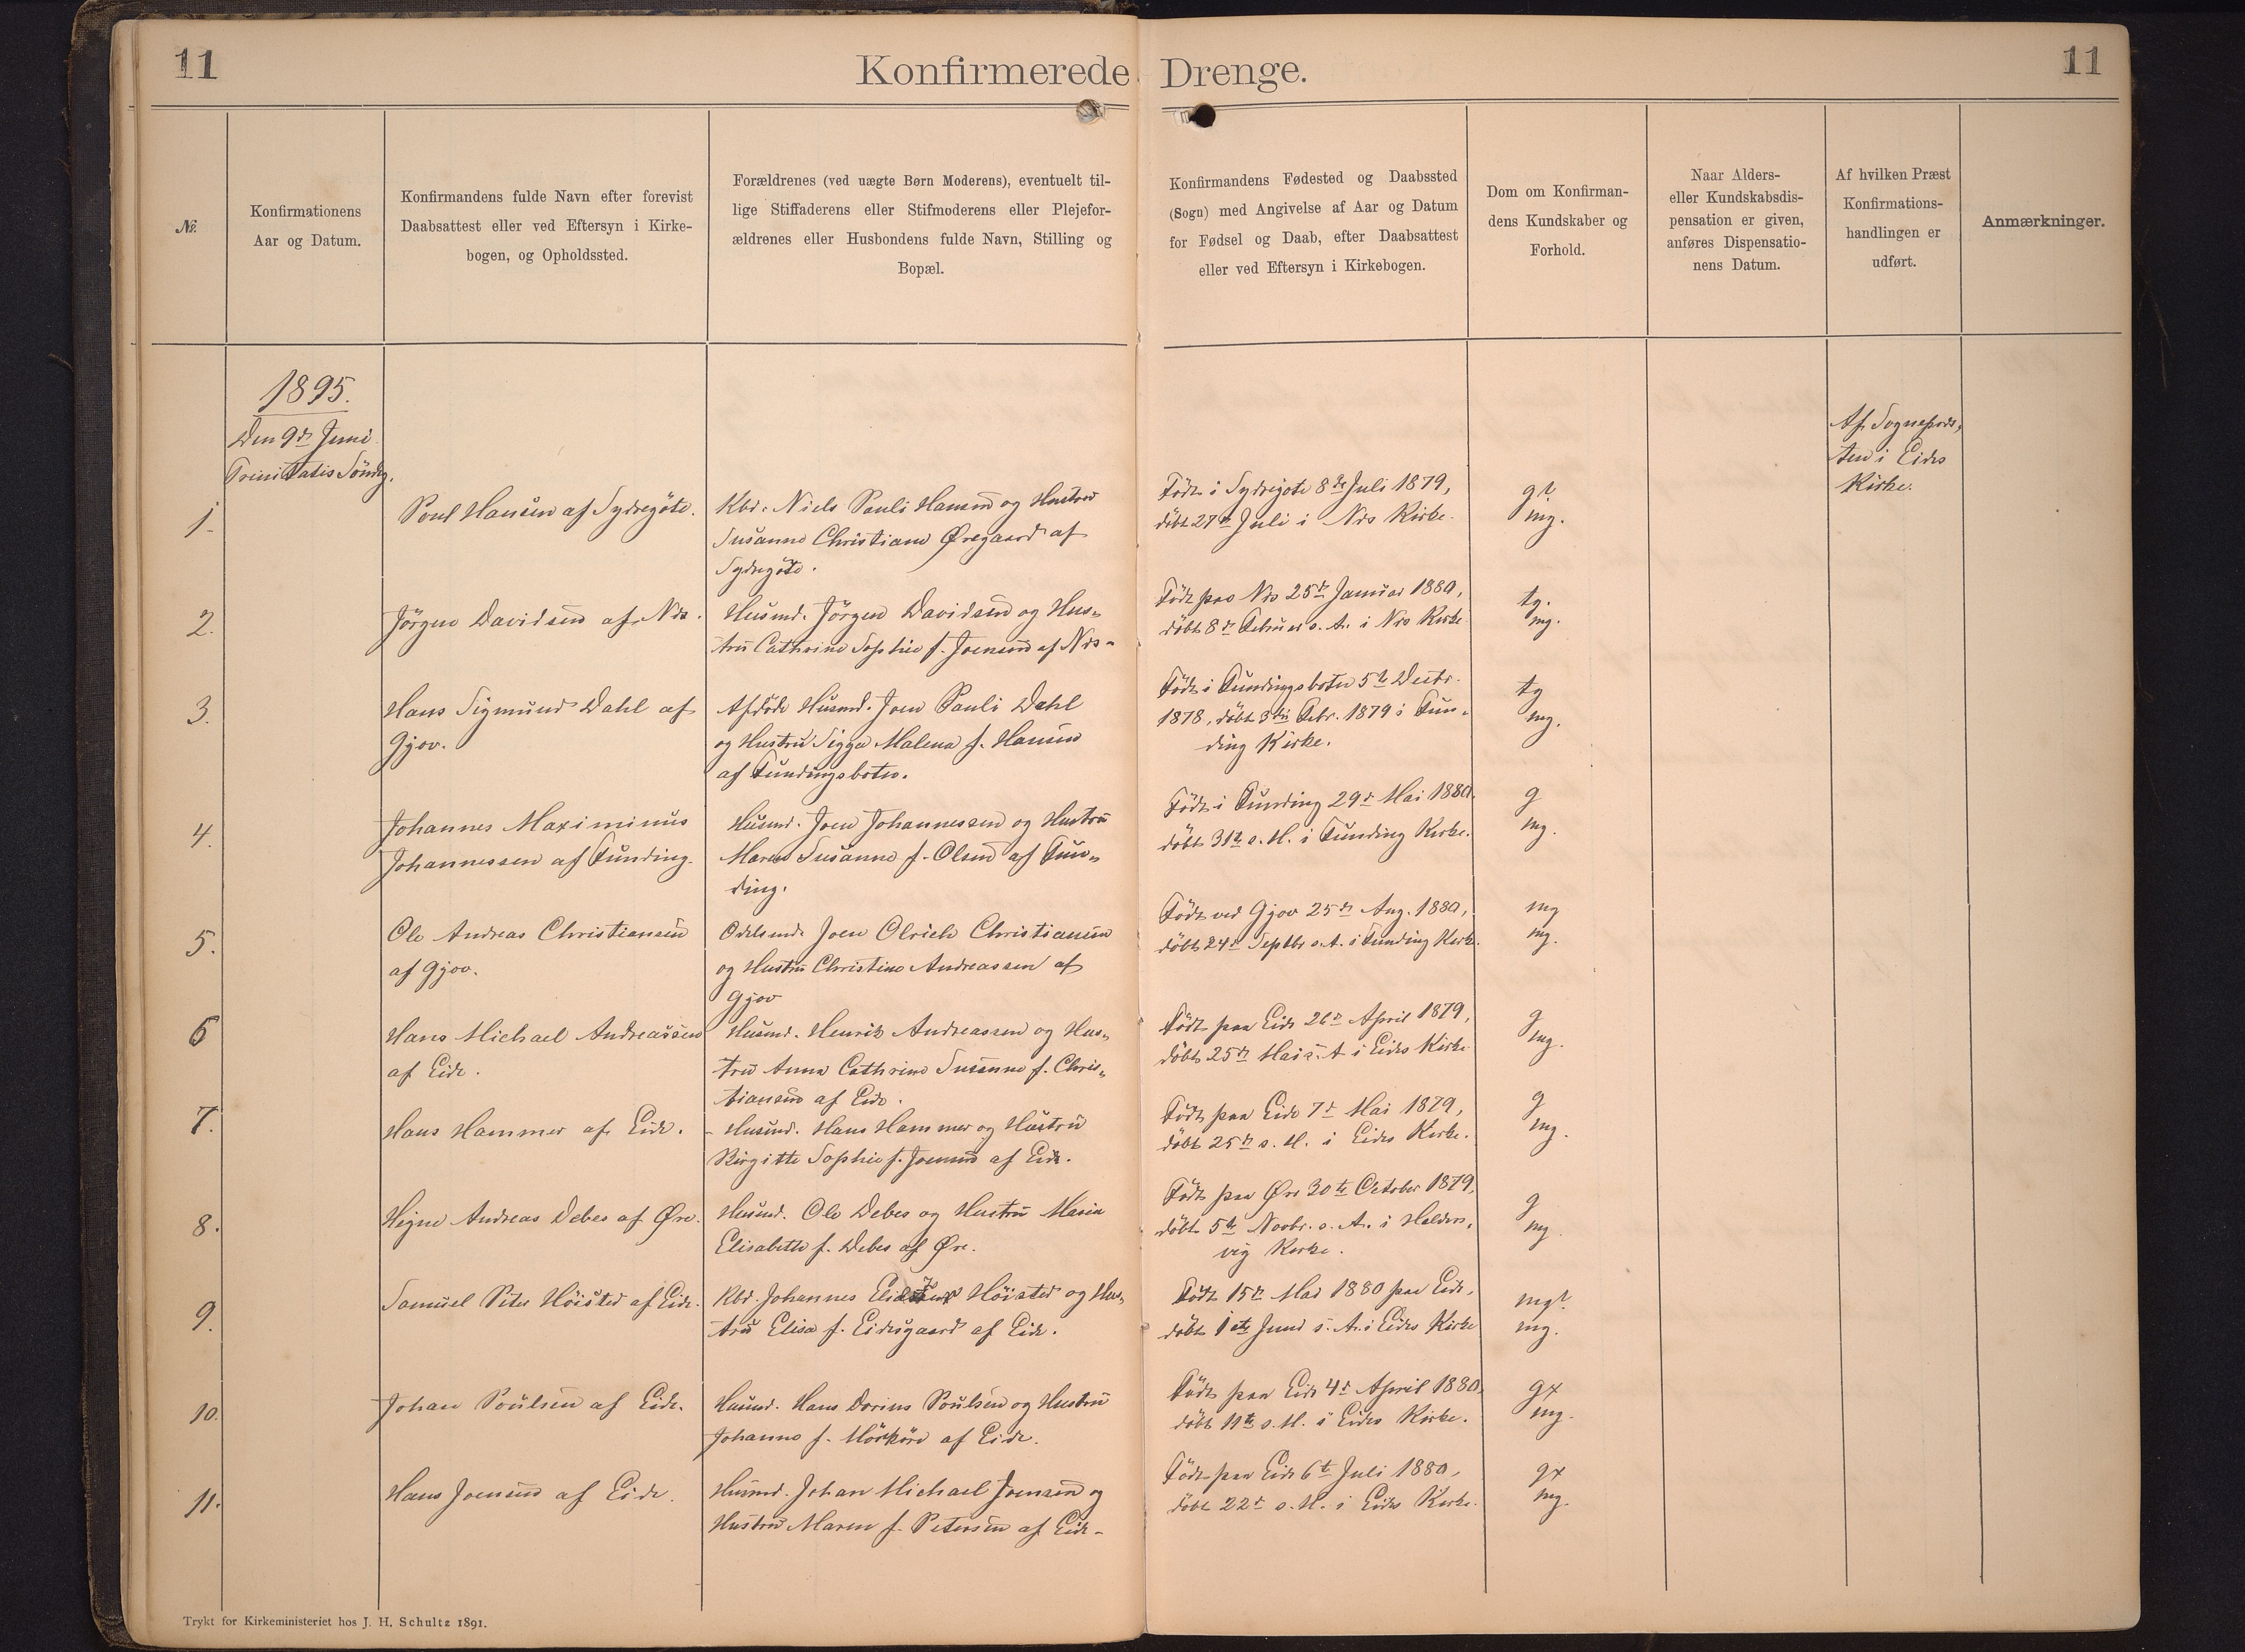 11
Konfirmerede Drenge.
11
№.
Konfirmationens
Aar og Datum.
Konfirmandens fulde Navn efter forevist
Daabsattest eller ved Eftersyn i Kirke-
bogen, og Opholdssted.
Forældrenes (ved uægte Børn Moderens), eventuelt til-
lige Stiffaderens eller Stifmoderens eller Plejefor-
ældrenes eller Husbondens fulde Navn, Stilling og
Bopæl.
Konfirmandens Fødested og Daabssted
(Sogn) med Angivelse af Aar og Datum
for Fødsel og Daab, efter Daabsattest
eller ved Eftersyn i Kirkebogen.
Dom om Konfirman-
dens Kundskaber og
Forhold.
Naar Alders-
eller Kundskabsdis-
pensation er given,
anføres Dispensatio-
nens Datum.
Af hvilken Præst
Konfirmations-
handlingen er
udført.
Anmærkninger.
1895.
Den 9de Juni
Trinitatis Söndg.
Af Sognepræs,
ten i Eides
Kirke.
1.
Poul Hansen af Sydregöte.
Kbd. Niels Pauli Hansen og Hustru
Susanne Christiane Øregaard af
Sydregöte.
Födt i Sydregöte 8de Juli 1879,
döbt 27de Juli i Nes Kirke.
g?
mg.
2.
Jörgen Davidsen af Nes.
Husmd. Jörgen Davidsen og Hus-
tru Cathrine Sophie f. Joensen af Nes.
Födt paa Nes 25de Januar 1880,
döbt 8de Februar s. A. i Nes Kirke.
tg.
mg.
3.
Hans Sigmund Dahl af
Gjov.
Afdöde Husmd. Joen Pauli Dahl
og Hustru Sigga Malena f. Hansen
af Fundingsboten.
Födt i Fundingsboten 5te Decbr.
1878, döbt 3die Febr. 1879 i Fun-
ding Kirke.
tg
mg.
4.
Johannes Maximinus
Johannessen af Funding.
Husmd. Joen Johannessen og Hustru
Maren Susanne f. Olsen af Fun-
ding.
Födt i Funding 29de Mai 1880.
döbt 31te s. M. i Funding Kirke.
g
mg.
5.
Ole Andreas Christiansen
af Gjov.
Odelsmd. Joen Olrich Christiansen
og Hustru Christine Andreassen af
Gjov
Födt ved Gjov 25de Aug. 1880,
döbt 24de Septbr s. A. i Funding Kirke.
mg
mg.
6
Hans Michael Andreassen
af Eide.
Husmd. Henrik Andreassen og Hus-
tru Anna Cathrine Susanne f. Chris-
tiansen af Eide.
Födt paa Eide 26de April 1879,
döbt 25de Mai s. A i Eides Kirke
g
mg.
7.
Hans Hammer af Eide.
Husmd. Hans Hammer og Hustru
Birgitte Sophie f. Joensen af Eide.
Födt paa Eide 7de Mai 1879,
döbt 25de s. M. i Eides Kirke.
g
mg.
8.
Heine Andreas Debes af Øre.
Husmd. Ole Debes og Hustru Maria
Elisabeth f. Debes af Øre.
Födt paa Øre 30te October 1879,
döbt 5te Novbr. s. A. i Halders-
vig Kirke.
g
mg.
9.
Samuel Peter Höisted af Eide.
Kbd. Johannes Höisted og Hus-
tru Elisa f. Eidesgaard af Eide.
Födt 15de Mai 1880 paa Eide,
döbt 1ste Juni s. A. i Eides Kirke
mg?
mg.
10.
Johan Poulsen af Eide.
Husmd. Hans Dorius Poulsen og Hustru
Johanne f. Mörköre af Eide.
Födt paa Eide 4de April 1880,
döbt 11te s. M. i Eides Kirke.
gx
mg.
11.
Hans Joensen af Eide.
Husmd. Johan Michael Joensen og
Hustru Maren f. Petersen af Eide.
Födt paa Eide 6te Juli 1880,
döbt 22de s. M. i Eides Kirke.
gx
mg.
Trykt for Kirkeministeriet hos J. H. Schultz 1891.